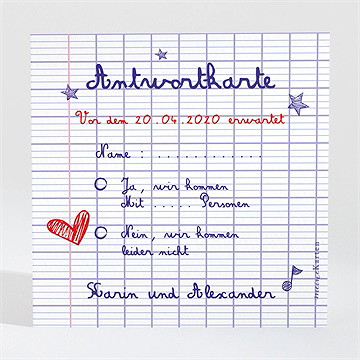 Antwortkarte
Vor dem 20.04.2020 erwartet
Name : . . . . . . . . . . . .
Ja, wir kommen
Mit ..... Personen
Nein, wir kommen
leider nicht
Karin und Alexander
meineKarten